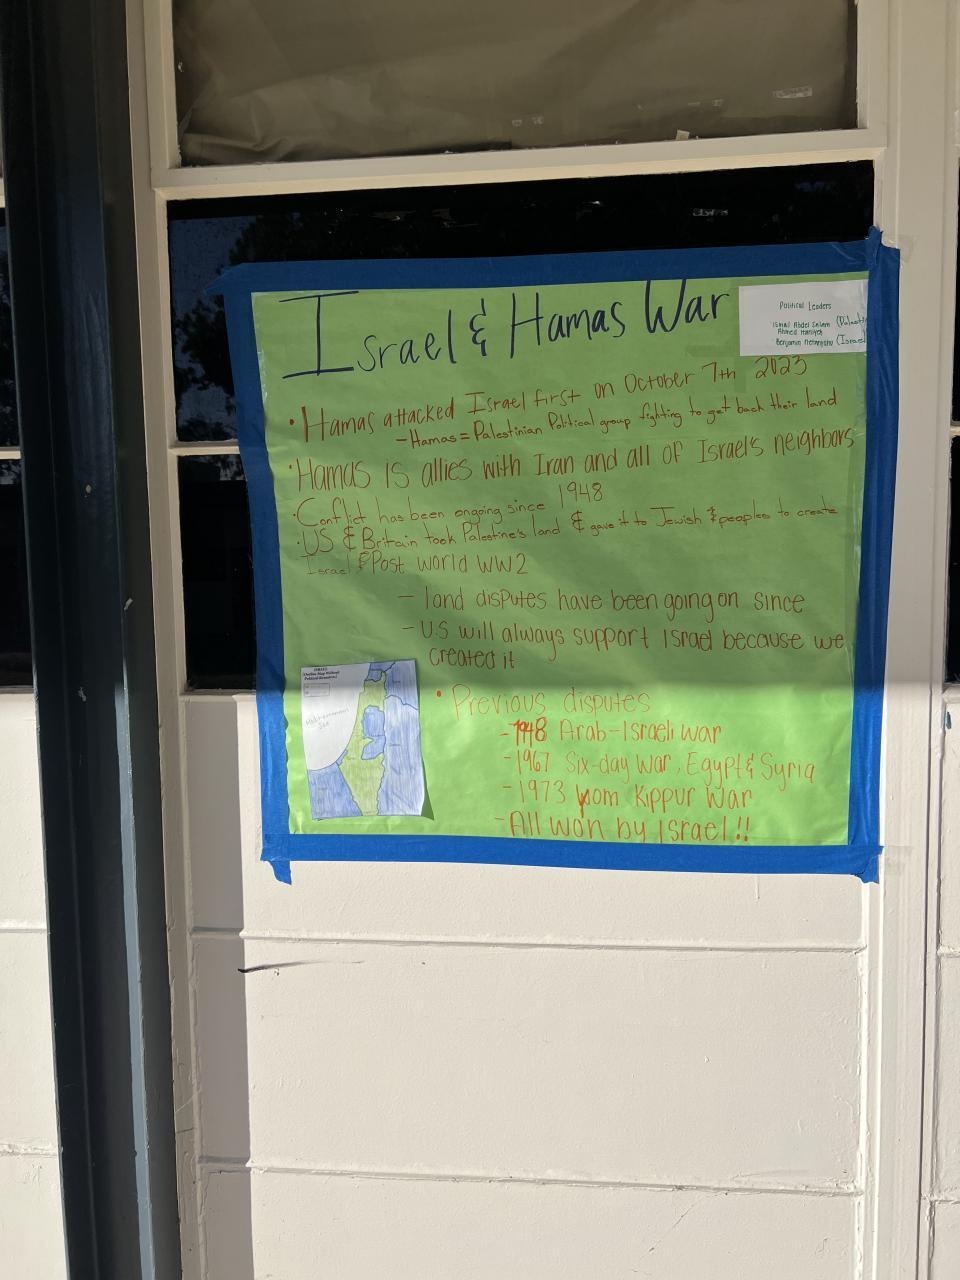 Israel & Hamas War
Political Leaders
Ismail Abdel Salam
Ahmed Haniyeh
Benjamin Netanyahu (Israel
• Hamas attacked Israel first on October 7th 2023
- Hamas = Palestinian Political group fighting to get back their land
• Hamas is allies with Iran and all of Israel's neighbors
• Conflict has been ongoing since 1948
• US & Britain took Palestine's land & gave it to Jewish & peoples to create
Israel & Post world WW2
- land disputes have been going on since
- U.S will always support Israel because we
created it
ISRAEL
Mediterranean
Sea
• Previous disputes
- 1948 Arab-Israeli war
- 1967 Six-day war, Egypt & Syria
- 1973 Yom Kippur War
- All won by Israel!!